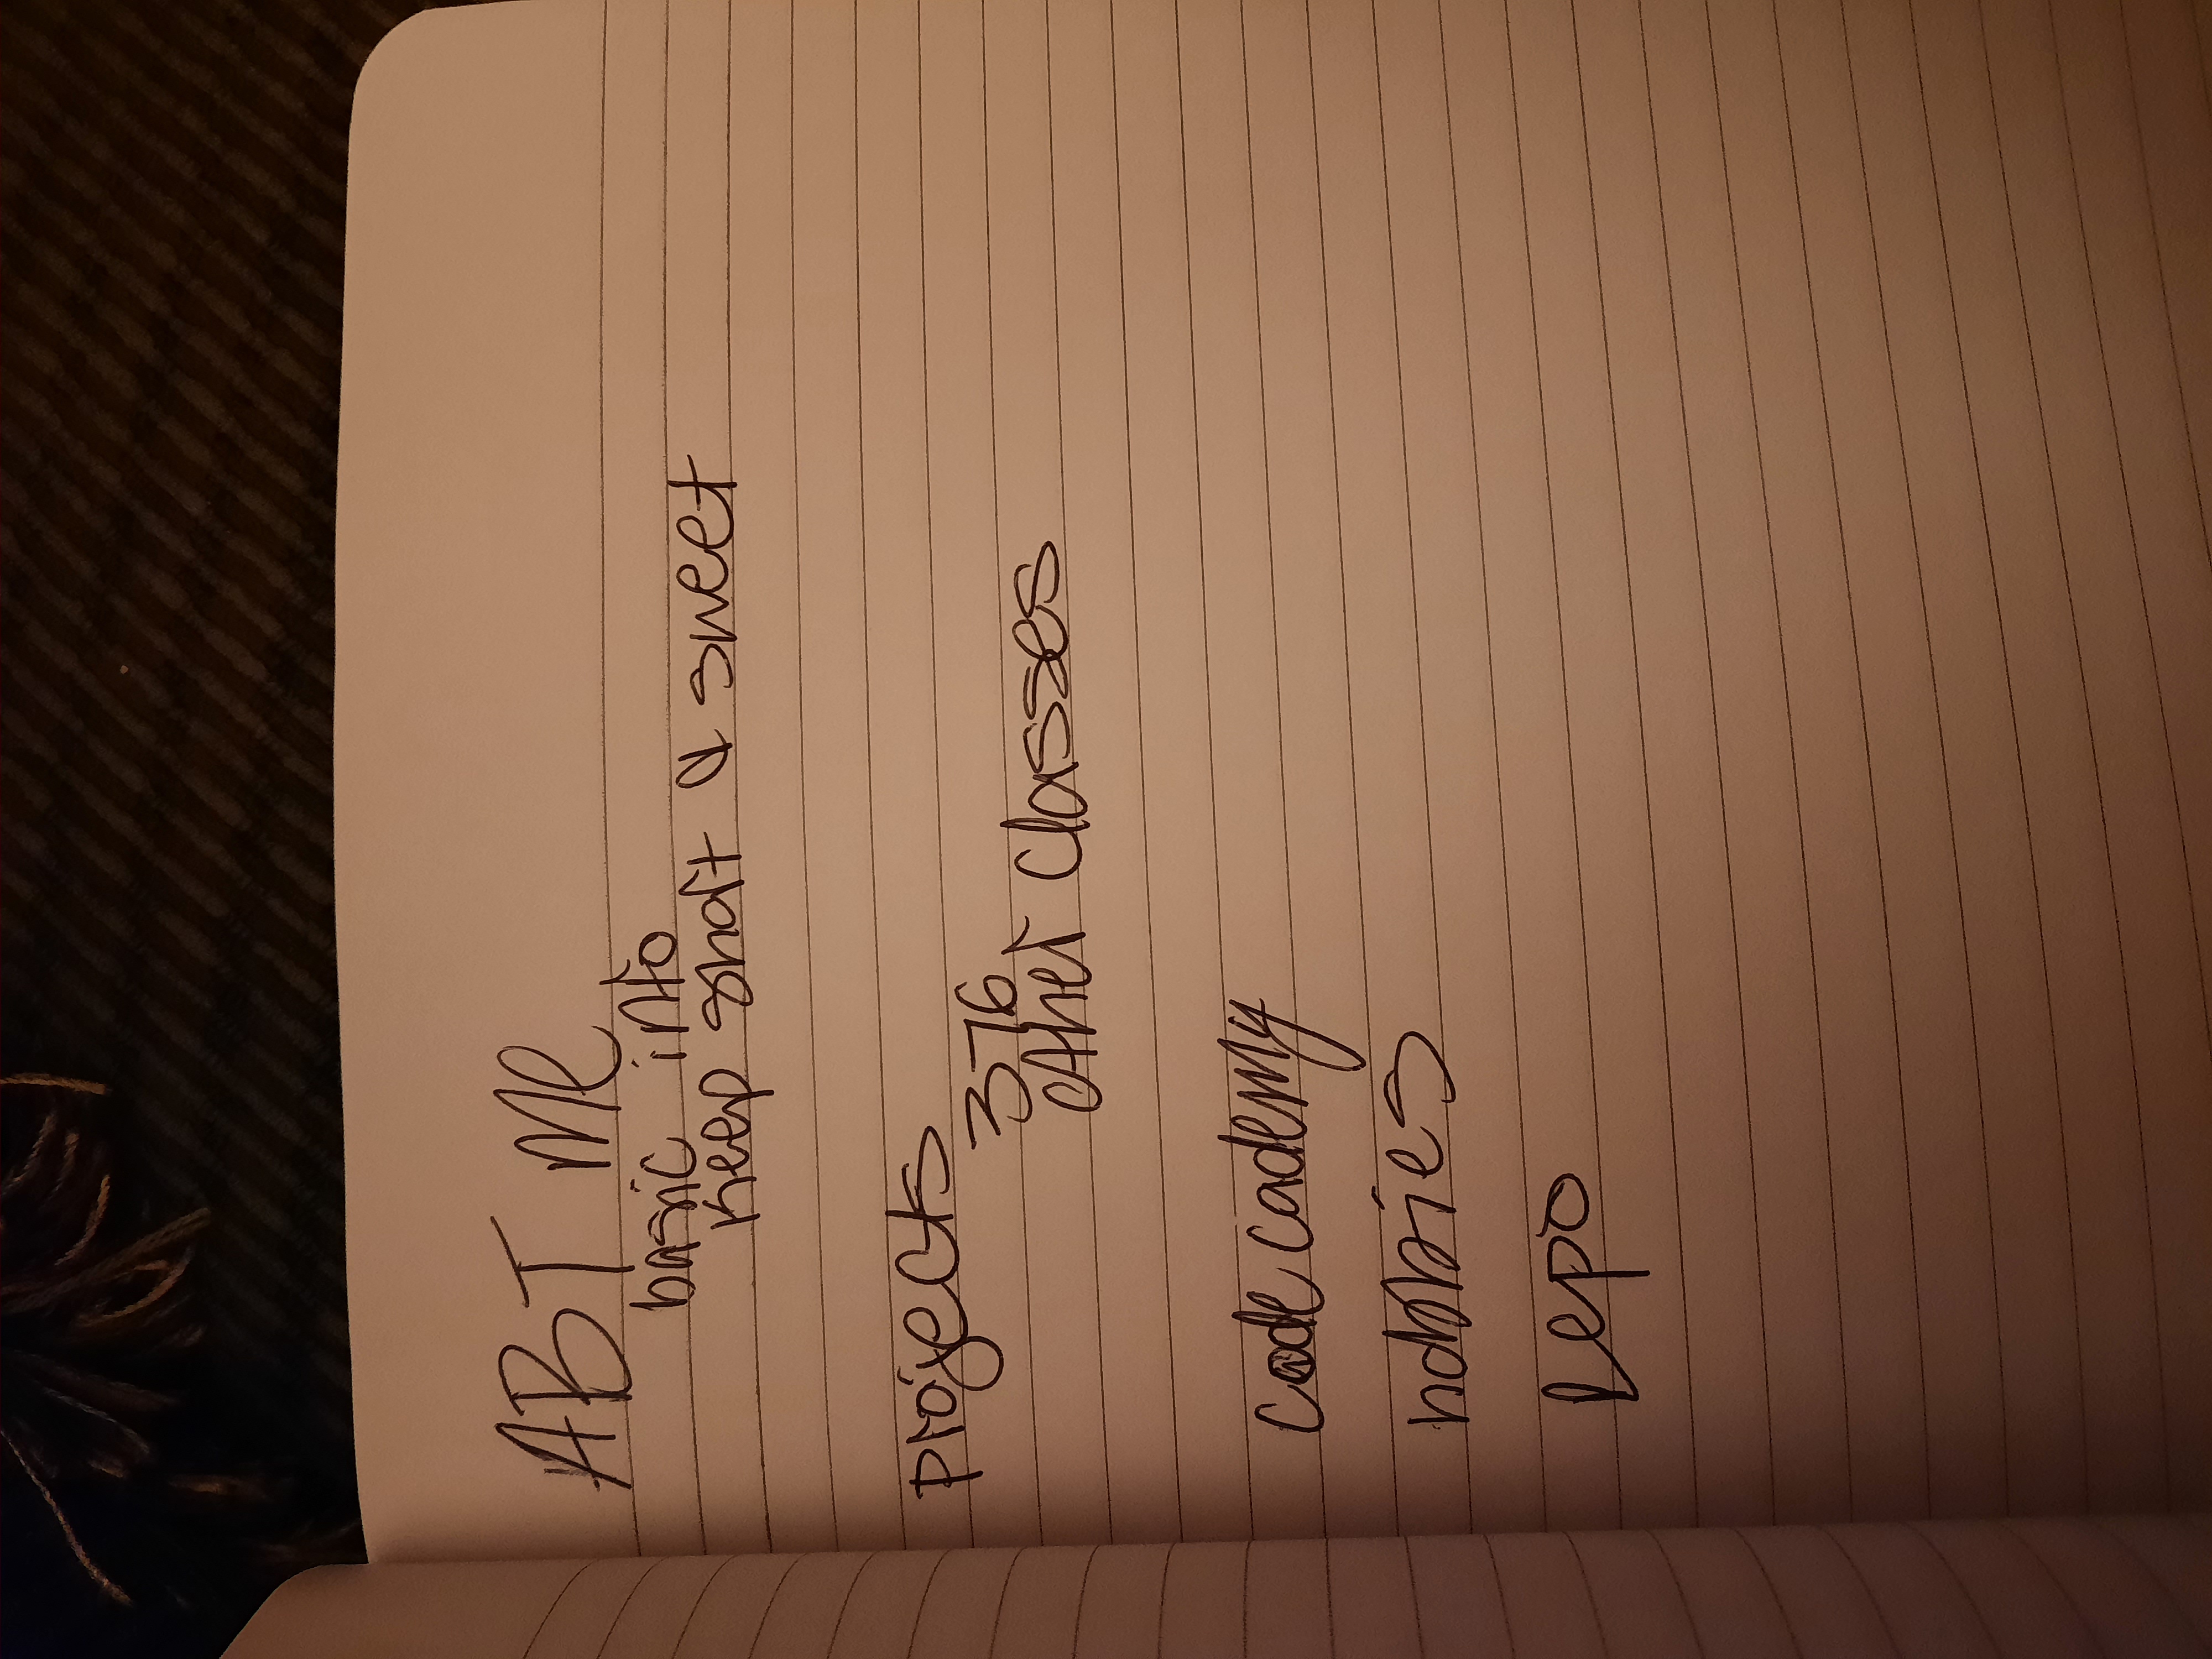 ABT Me
basic info
keep short & sweet
projects
376
other classes
code cademy
hobbies
Repo